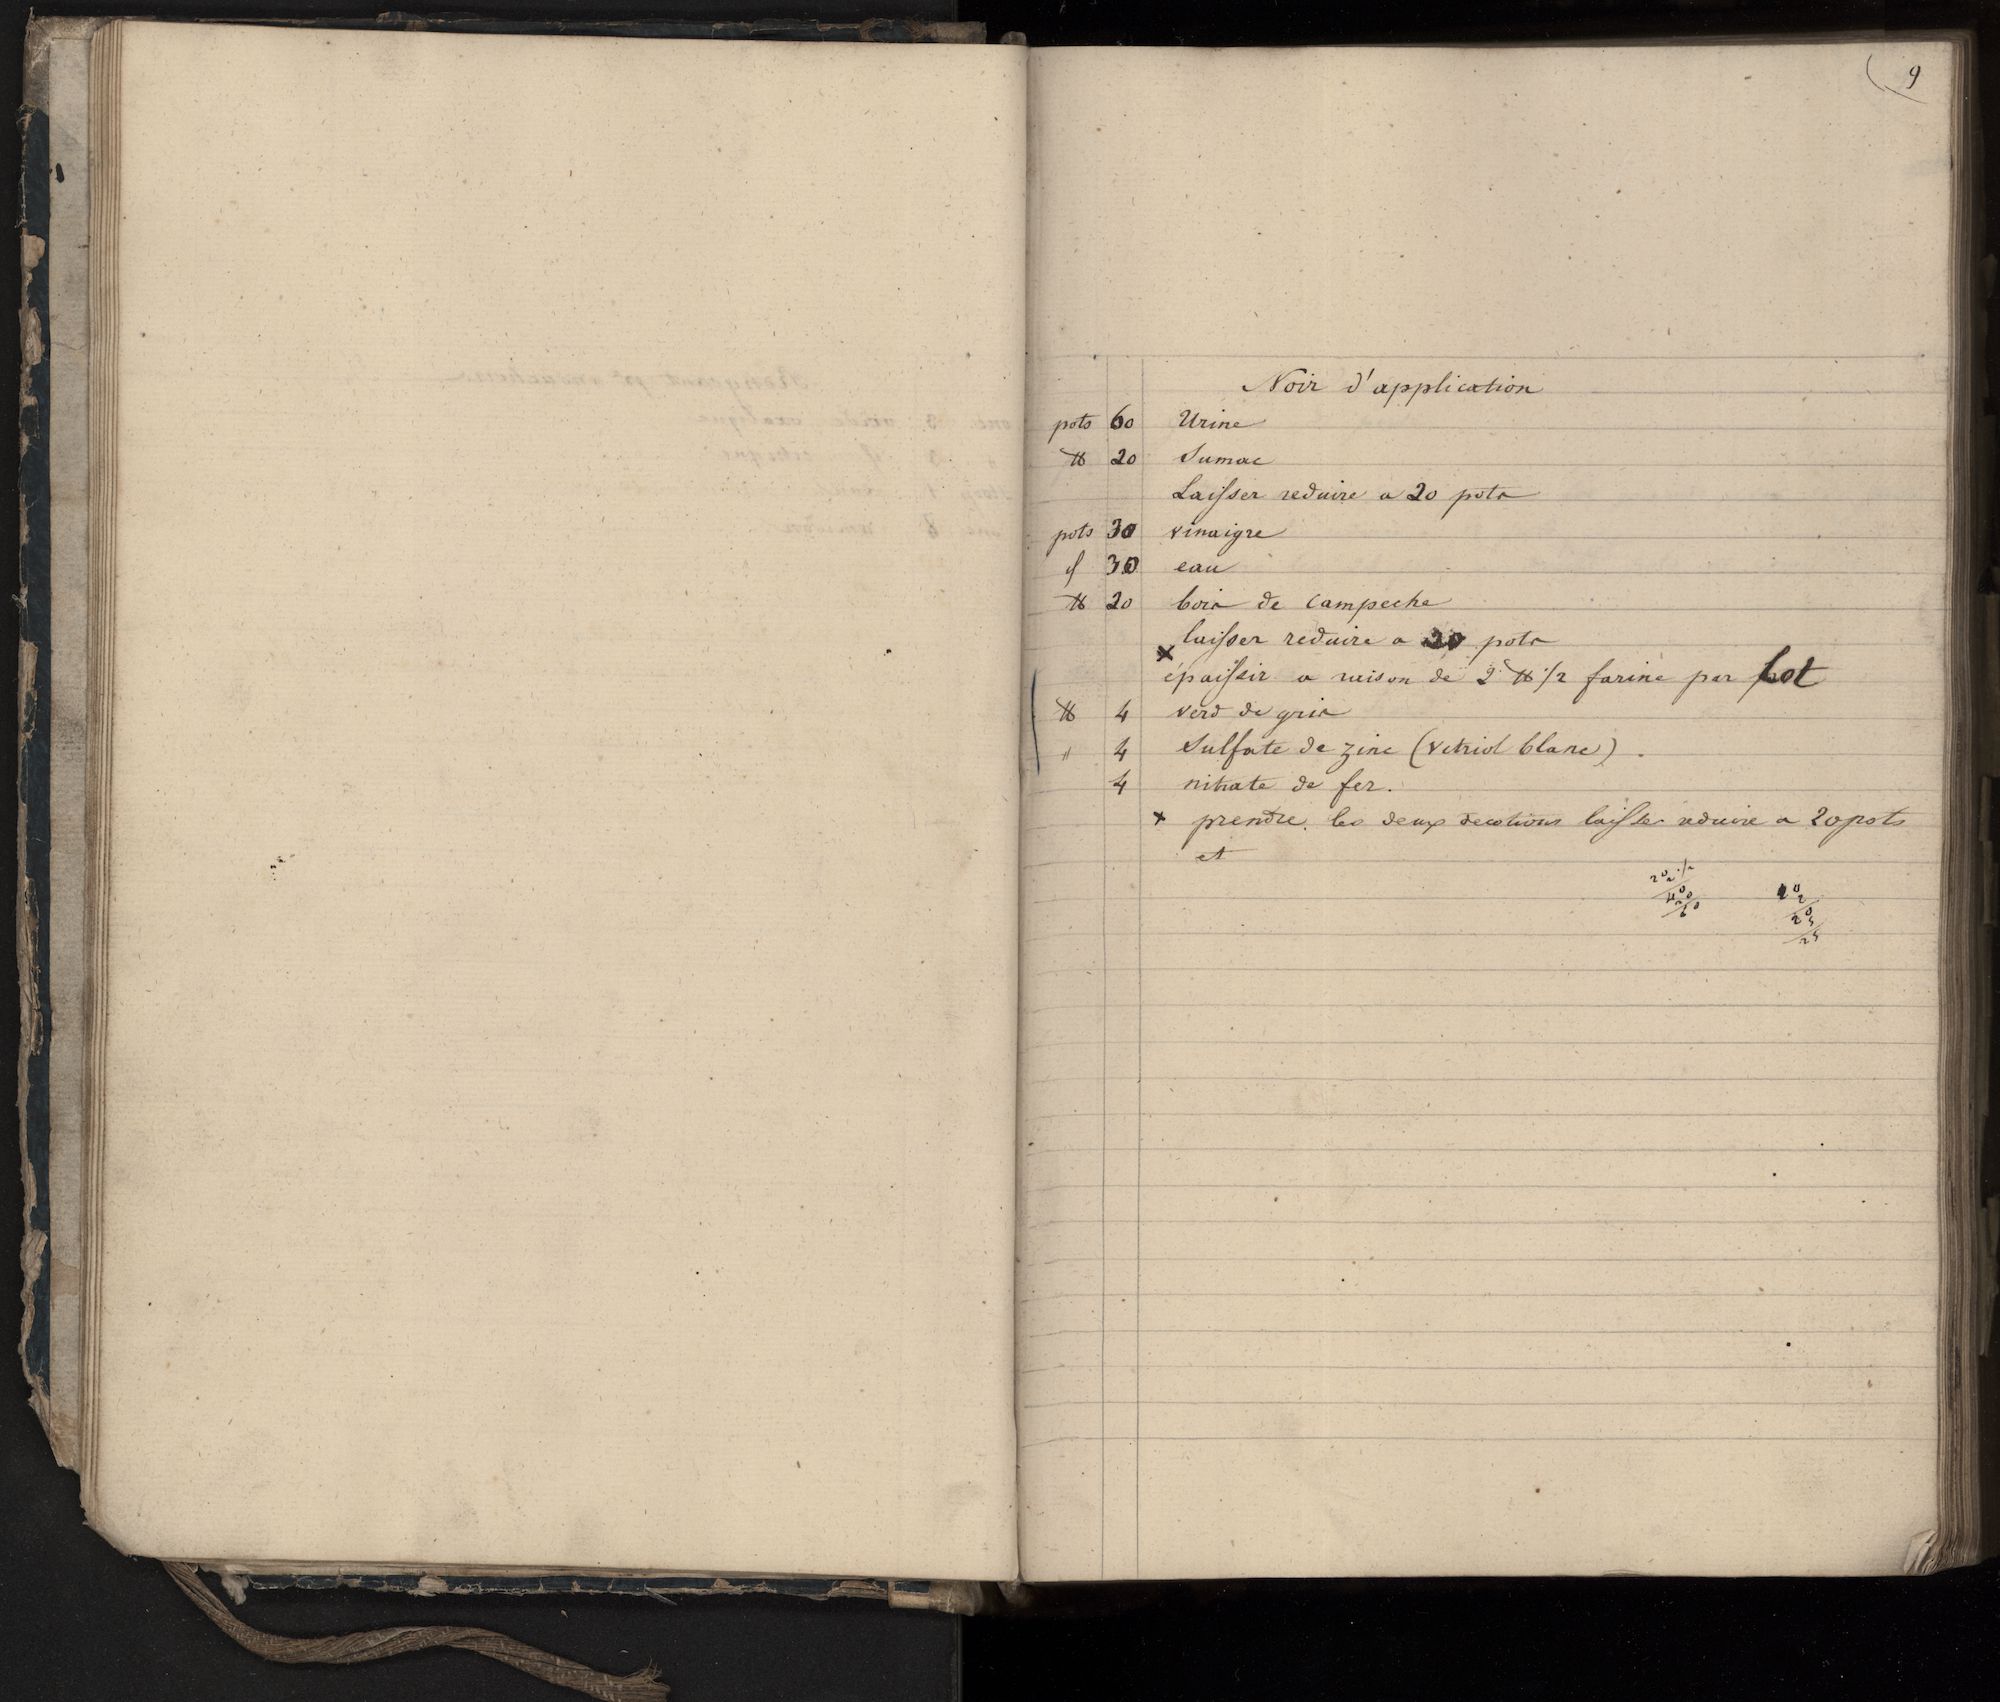 9
Noir d'application
pots 60 Urine
℔ 20 Sumac
Laisser reduire a 20 pots
pots 30 vinaigre
30 eau
℔ 20 bois de Campeche
laisser reduire a 20 pots
× épaissir a raison de 2 ℔ 1/2 farine par pot
℔ 4 verd de gris
" 4 Sulfate de zinc (vitriol blanc).
4 nitrate de fer.
× prendre les deux decotions laisser reduire a 20 pots
et